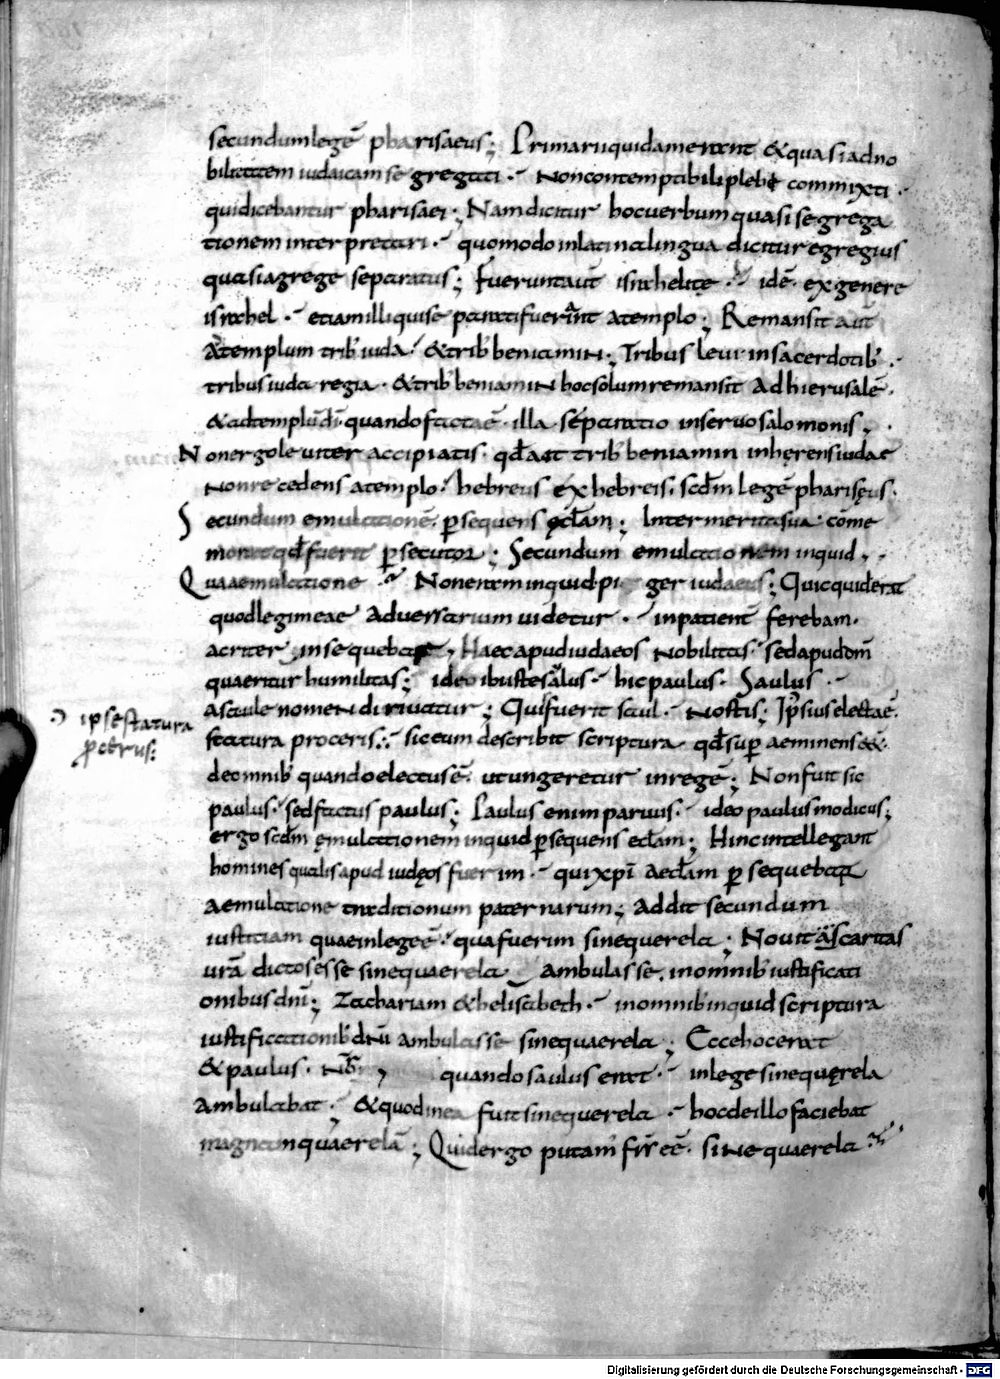 secundumlegē pharisaeus; Primariiquidamerant &quasiadno
bilitatem iudaicam segregati · Noncontemptibiliplebi commixti ·
quidicebantur pharisaei; Namdicitur hocuerbumquasi segrega
tionem interpretari · quomodo inlatinalingua dicituregregius
quasiagrege separatus; Fueruntaut̄ israhelitę · idē · exgenere
israhel · etiamilliquise parati fuerant atemplo; Remansit aut̄
adtemplum trib' iuda · & trib' beniamin; Tribus leui insacerdotib' ·
tribusiuda regia · & trib' beniamin hocsolumremansit adhierusalē ·
&adtemplūdī quandofactaē · illa separatio inseruosalomonis,
Nonergoleuiter accipiatis · qđait trib' beniamin inhęrensiudae
Nonrecedens atemplo · hebreus exhebreis, scđm legē pharisęus ·
Secundum emulationē persequens ęclam; Intermeritasua cōme
morat qđ fuerit persecutor; Secundum emulationem inquid,
Quaaemulatione · Nonerataminquidpi ger iudaeus; Quicquiderat
quodlegimeae aduersarium uidetur · inpatient̄ ferebam ·
acriter insequebar, Haecapudiudaeos Nobilitas · sedapuddm̄
quaeritur humilitas; ideo ibustesalus · hicpaulus · Saulus ·
asaule nomen diriuatur; Quisfuerit saul · Nostis; Ipsiuselectaē ·
statura proceris · siceum describit scriptura qđsuper aeminens&
deomnib' quandoelectusē · utungeretur inregē; Nonfuit sic
paulus · sedfactus paulus; Paulus enim paruus · ideo paulusmodicus;
ergo scđm ęmulationem inquid persequens eclam; Hincintellegant
homines qualisapud iudęos fuerim · quixpī aeclam persequebar
aemulatione traditionum paternarum; Addit secundum
iustitiam quaeinlegeē · quafuerim sinequerela; Nouit caritas
urā dictosesse sinequaerela ambulasse, inomnib' iustificati
onibusdnī; Zachariam &helisabeth · inomnib' inquid scriptura
iustificationib' dnī ambulasse sinequaerela; Eccehocerat
&paulus · Nr̄, quandosaulus erat · inlege sinequęrela
Ambulabat · &quodinea fuit sinequerela · hocdeillofaciebat
magnamquaerelā; Quidergo putam' frr̄ eē · sinequaerela
ipse statura
procerus: